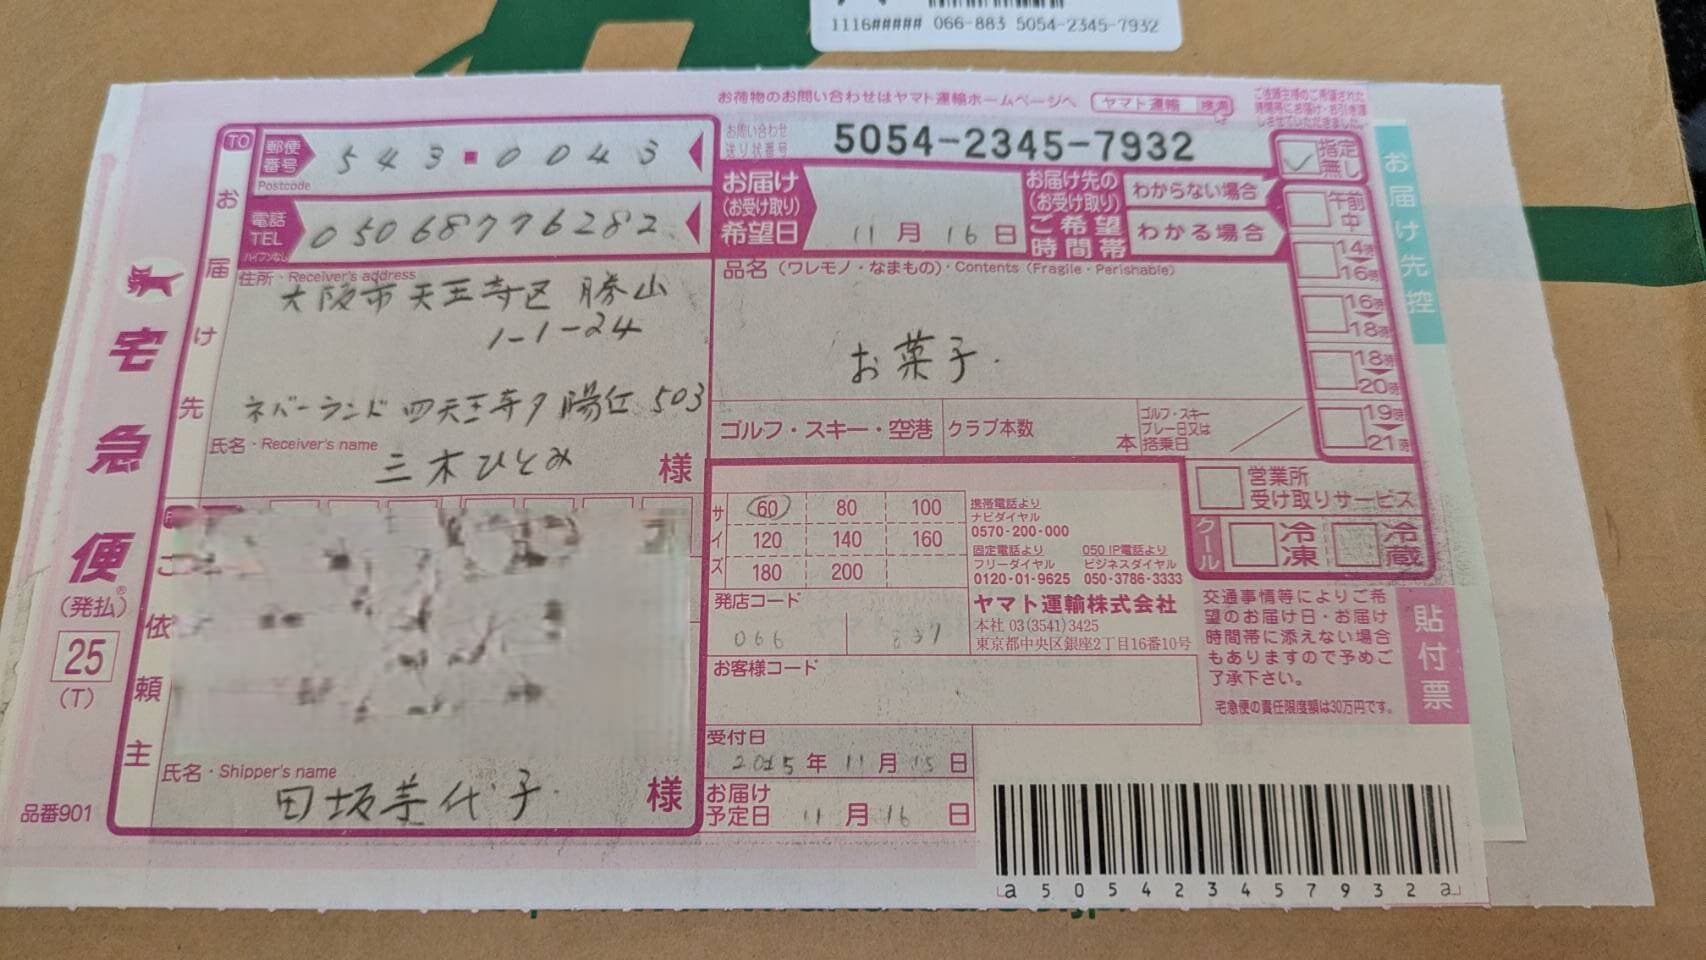 1116##### 066-883 5054-2345-7932
お荷物のお問い合わせはヤマト運輸ホームページへ ヤマト運輸 検索
ご依頼主様のご希望された
時間帯にお届け・お引き渡
しさせていただきました。
TO
郵便番号
Postcode
543-0043
お問い合わせ
送り状番号
5054-2345-7932
電話
TEL
ハイフンなし
05068776282
お届け
(お受け取り)
希望日
11月16日
お届け先の
(お受け取り)
ご希望
時間帯
わからない場合
わかる場合
指定無し
午前中
14時 16時
16時 18時
18時 20時
19時 21時
お届け先控
お届け先
住所・Receiver's address
大阪市天王寺区 勝山
1-1-24
ネバーランド四天王寺夕陽丘 503
氏名・Receiver's name
三木ひとみ 様
品名(ワレモノ・なまもの)・Contents (Fragile・Perishable)
お菓子.
ゴルフ・スキー・空港
クラブ本数 本
ゴルフ・スキー
プレー日又は
搭乗日
営業所
受け取りサービス
クール
冷凍
冷蔵
サイズ
60 80 100
120 140 160
180 200
携帯電話より
ナビダイヤル
0570-200-000
固定電話より
フリーダイヤル
0120-01-9625
050 IP電話より
ビジネスダイヤル
050-3786-3333
ヤマト運輸株式会社
本社 03(3541)3425
東京都中央区銀座2丁目16番10号
発店コード
066
お客様コード
交通事情等によりご希
望のお届け日・お届け
時間帯に添えない場合
もありますので予めご
了承下さい。
宅急便の責任限度額は30万円です。
貼付票
宅急便
(発払)
25
(T)
品番901
ご依頼主
氏名・Shipper's name
田坂美代子 様
受付日
年11月15日
お届け
予定日
11月16日
a505423457932a